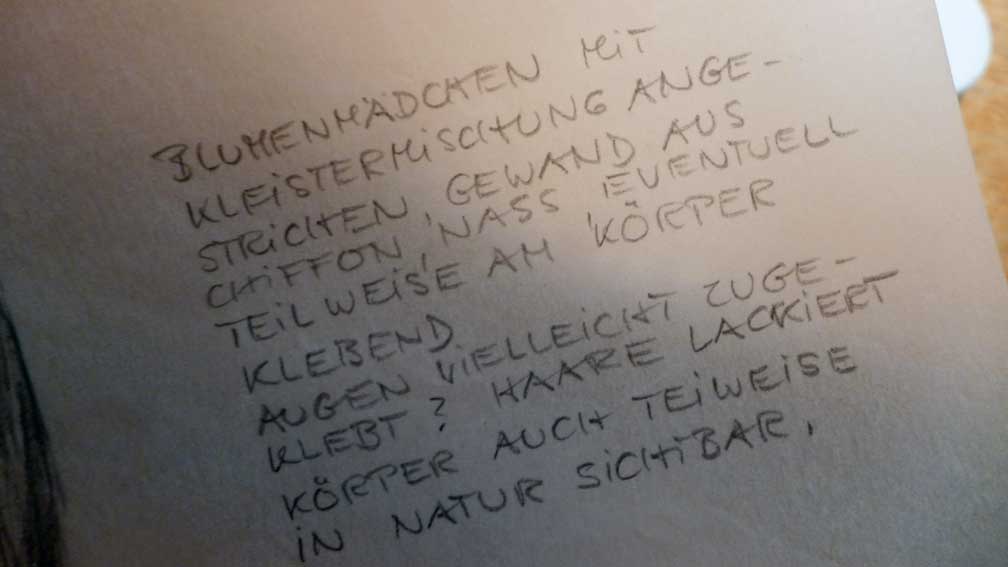 BLUMENMÄDCHEN MIT
KLEISTERMISCHUNG ANGE-
STRICHEN, GEWAND AUS
CHIFFON, NASS EVENTUELL
TEILWEISE AM KÖRPER
KLEBEND
AUGEN VIELLEICHT ZUGE-
KLEBT? HAARE LACKIERT
KÖRPER AUCH TEIWEISE
IN NATUR SICHTBAR.